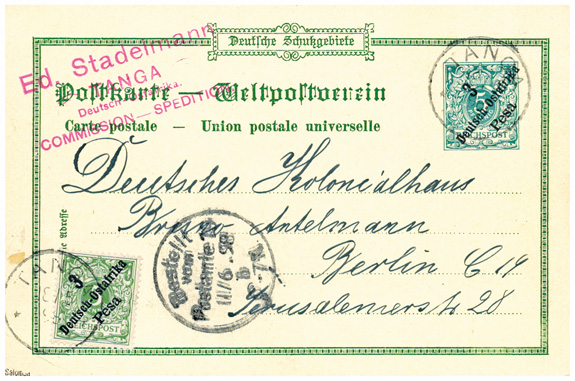 Deutsche Schutzgebiete
Ed. Stadelmann
TANGA
Deutsch-Ostafrika.
COMMISSION–SPEDITION
Postkarte — Weltpostverein
Carte postale — Union postale universelle
TANGA
3
5
Deutsch-Ostafrika
Pesa
REICHSPOST
Deutsches Kolonialhaus
Bruno Antelmann
Berlin C 19
Jerusalemerstr 28
Bestellt
vom
Postamte
6 .98
TANGA
3
Deutsch-Ostafrika
Pesa
REICHSPOST
Adresse